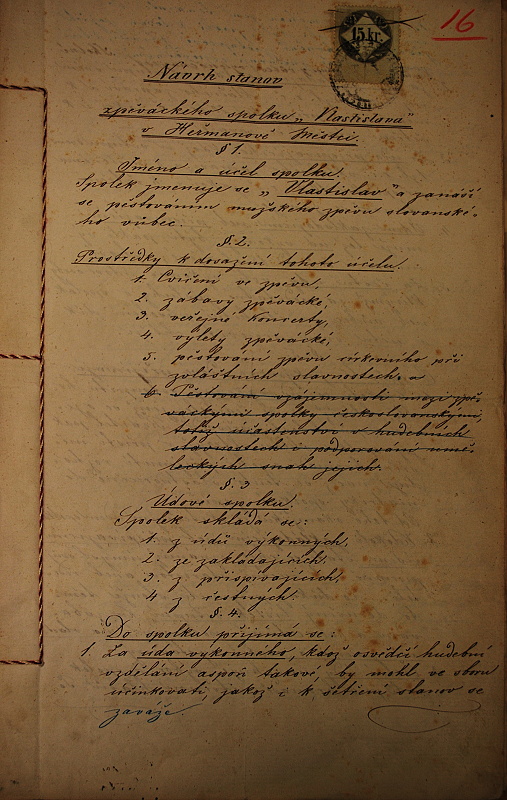 16
15 kr.
Návrh stanov
zpěváckého spolku „Vlastislava"
v Heřmanově Městci
§ 1.
Jméno a účel spolku.
Spolek jmenuje se „Vlastislav" a zanáší
se pěstováním mužského zpěvu slovanské-
ho vůbec.
§. 2.
Prostředky k dosažení tohoto účelu.
1. Cvičení ve zpěvu,
2. zábavy zpěvácké,
3. veřejné koncerty,
4. výlety zpěvácké,
5. pěstování zpěvu církevního při
zvláštních slavnostech. a
6. Pěstování vzájemnosti mezi zpě-
váckými spolky českoslovanskými,
totiž účastenství v hudebních
slavnostech i podporování umě-
leckých snah jejich.
§. 3
Údové spolku.
Spolek skládá se:
1. z údů výkonných,
2. ze zakládajících.
3. z přispívajících,
4 z čestných.
§. 4.
Do spolku přijímá se:
1. Za úda výkonného, kdož osvědčí hudební
vzdělání aspoň takové, by mohl ve sboru
účinkovati, jakož i k šetření stanov se
zaváže.